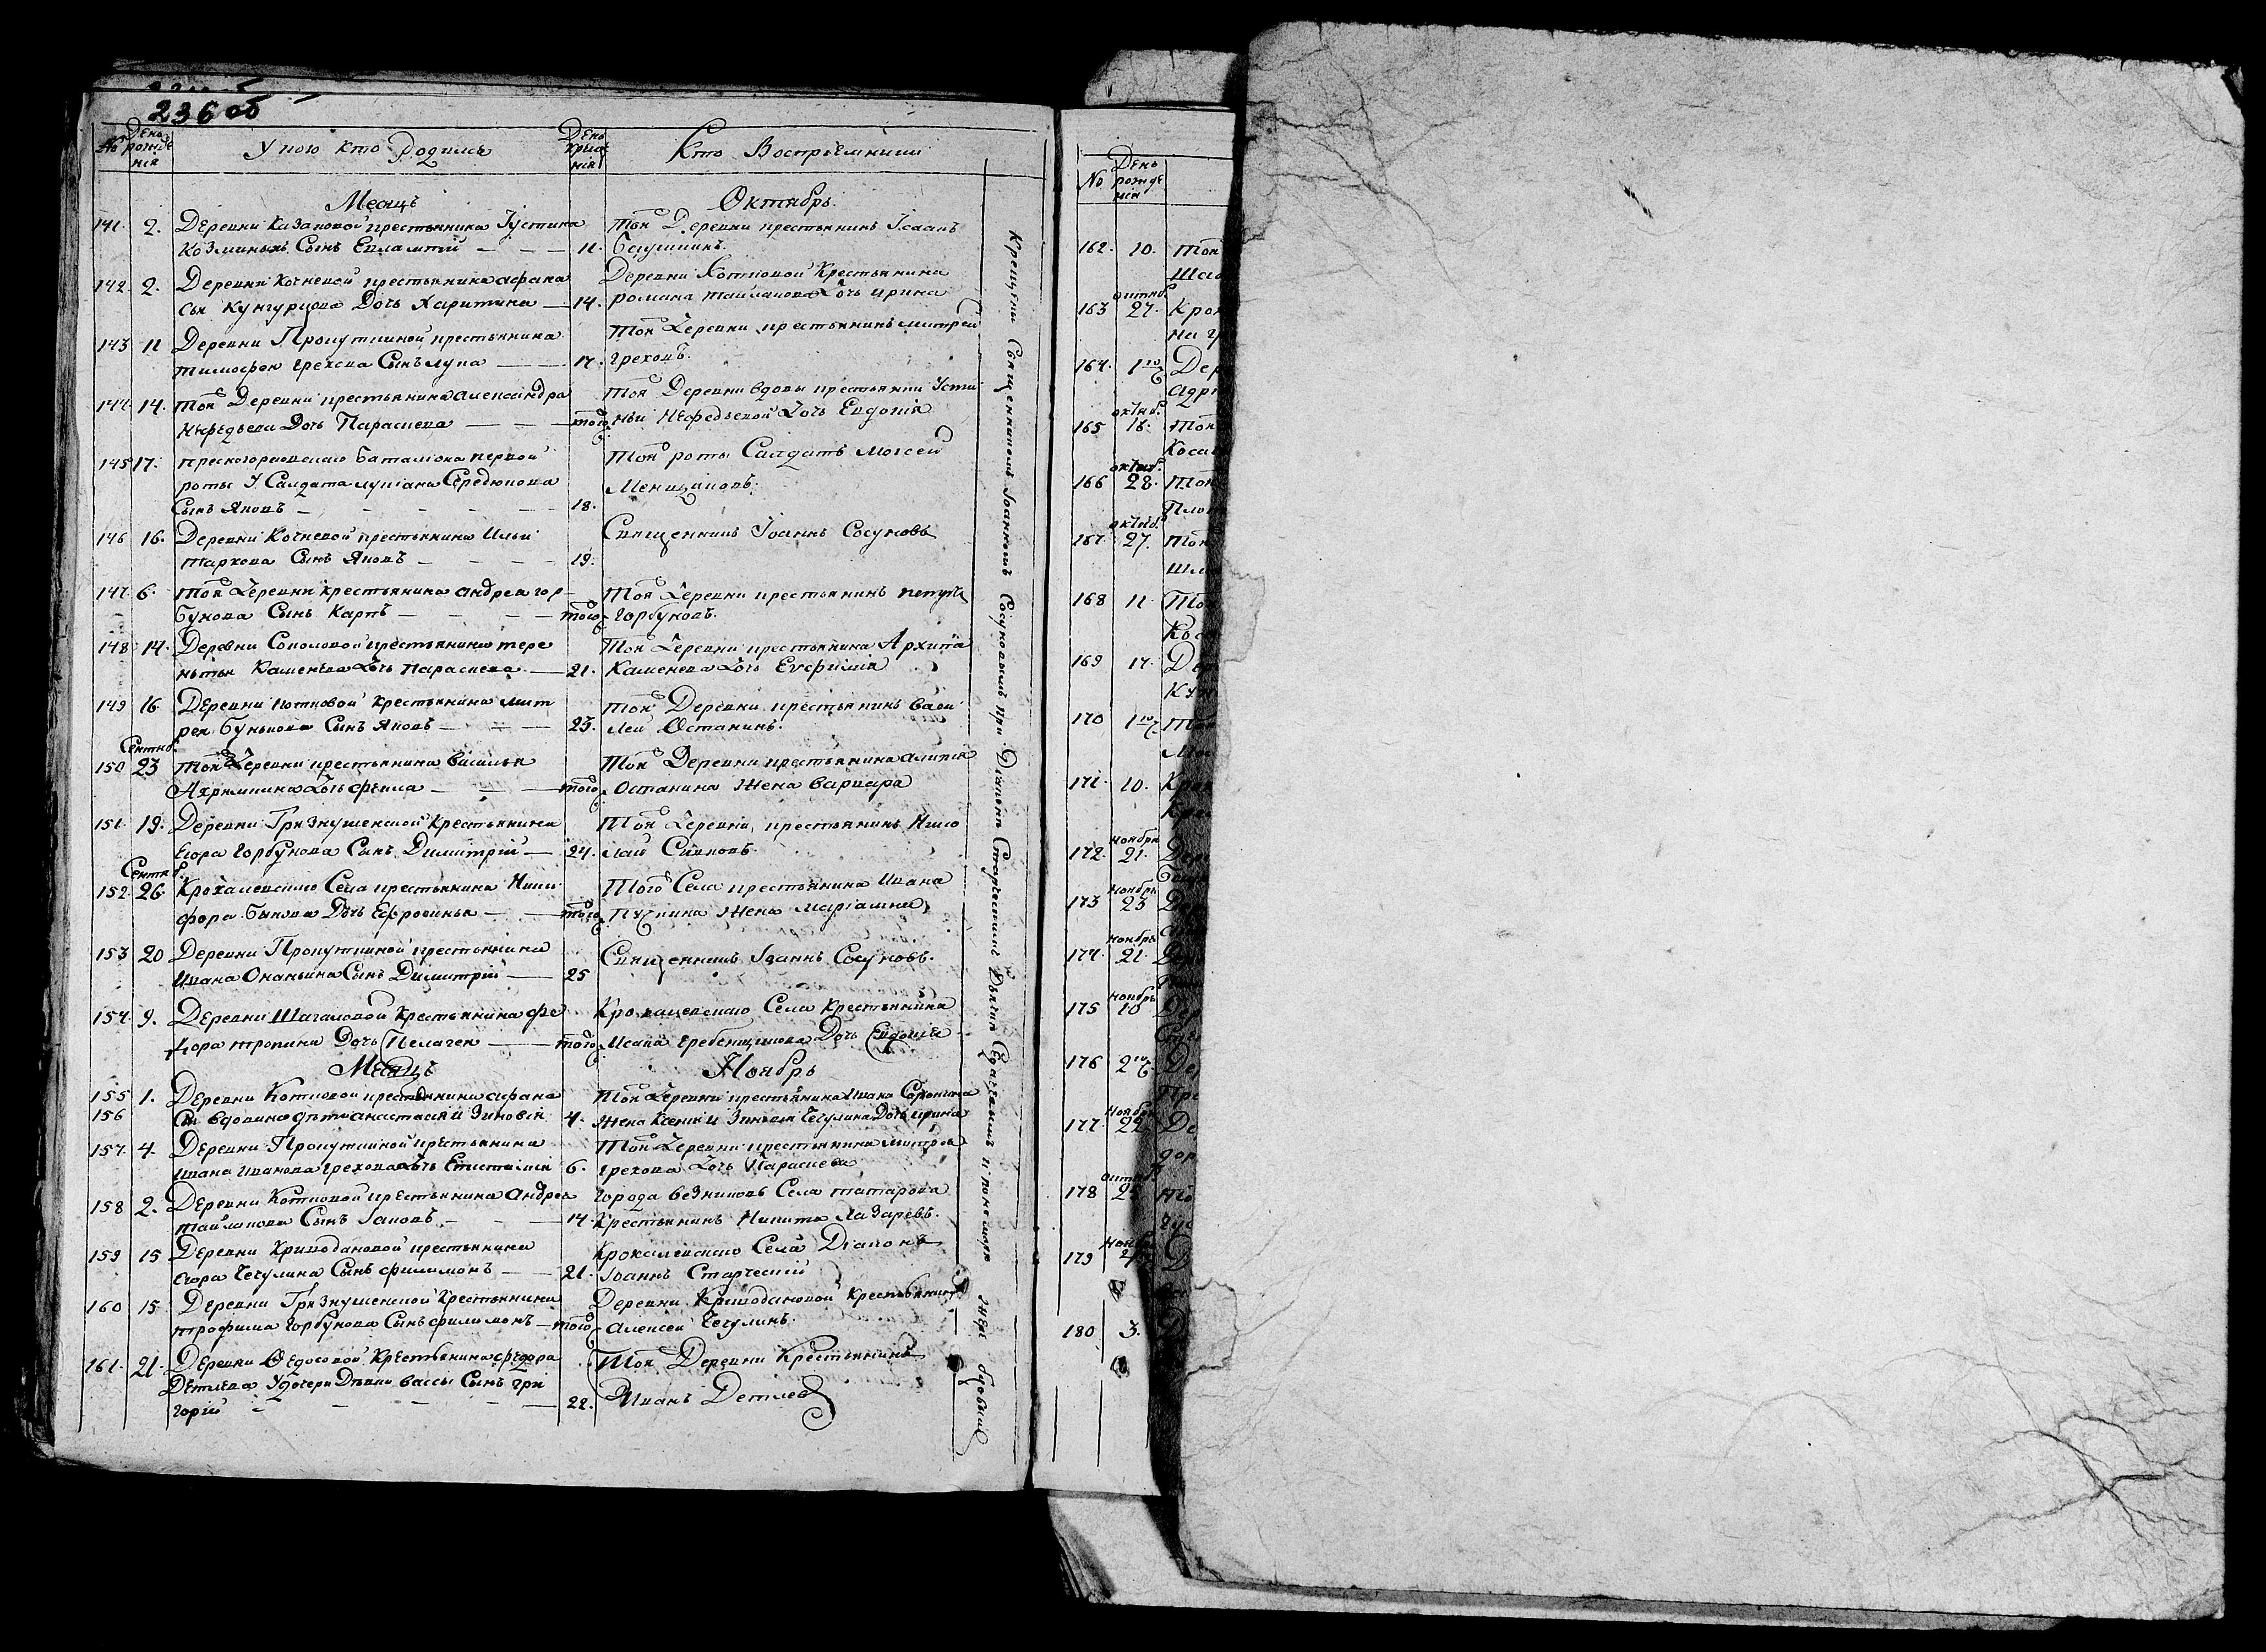 236 об
№ День рожде нія У кого кто Родился День креще нія Кто Воспріемники
Месяцъ Октябрь.
141. 2. Деревни Казаковой крестьянина Іустина
Козминыхъ Сынъ Евлампій — — — 11.
Тоя Деревни крестьянинъ Исаакъ
142. 2. Деревни Кочневой крестьянина афана
сья Кунгурцова Дочь Харитина — 14.
Деревни Котковой Крестьянина
романа тайлакова Дочь ирина
143 11 Деревни Пропуткиной крестьянина
тимофея грехова Сынъ лука — — 17.
Тоя Деревни крестьянинъ митрей
греховъ.
144. 14. тоя Деревни крестьянина александра
Нефедьева Дочь Параскева — — — того
Тоя Деревни вдовы крестьянки Усти
ньи Нефедьевой Дочь Евдокія
145 17. баталіона первой
роты У Салдата лукіана Середкова
Сынъ Яковъ — — — — — 18.
Тоя роты Салдатъ Моісей
Меньщиковъ.
146 16. Деревни Кочневой крестьянина Ильи
тархова Сынъ Яковъ — — — — 19.
Священникъ Іоаннъ Сосуновъ
147. 6. тоя Деревни крестьянина андрея гор
бунова Сынъ Карпъ — — — — того
Тоя Деревни крестьянинъ
горбуновъ.
148 14. Деревни Соколовой крестьянина тере
нтья Каменева Дочь параскева — 21.
Тоя Деревни крестьянина Архипа
Каменева Дочь Евфимія
149 16. Деревни котковой крестьянина мит
рея Бунькова Сынъ Яковъ — — — 23.
тоя Деревни крестьянинъ васи
лей Останинъ.
Сентяб.
150 23 тоя Деревни крестьянина василья
Дочь фекла — — — того
Тоя Деревни крестьянина
Останина Жена варвара
151. 19. Деревни Грязнушенской Крестьянина
Егора Горбунова Сынъ Димитрій — 24.
Тоя Деревни крестьянинъ Нико
лай Сивковъ.
Сентяб.
152. 26. Крохалевскаго Села крестьянина Ники
фора Быкова Дочь Ефросинья — — того
Того Села крестьянина Ивана
Жена
153 20 Деревни Пропуткиной крестьянина
Ивана Ананьина Сынъ Димитрій — 25
Священникъ Іоаннъ Сосуновъ.
154. 9. Деревни Шагаловой крестьянина фе
дора тропина Дочь Пелагея — — того
Крохалевскаго Села крестьянина
Исака гребенщикова Дочь Евдокія
Месяцъ Ноябрь
155 1. Деревни Котковой крестьянина афана
156 сья вдовина дѣти анастасія и Зиновей 4.
Тоя Деревни крестьянина Ивана Сорокина
Жена Ксенія и Зиновья Чечулина Дочь ирина
157. 4. Деревни Пропуткиной крестьянина
ивана иванова грехова Дочь 6.
Тоя Деревни крестьянина митрея
грехова Дочь Параскева
158 2. Деревни Котковой крестьянина андрея
тайлакова Сынъ Іаковъ — — — 14.
города везниковъ Села татарова
Крестьянинъ Никита Лазаревъ.
159 15 Деревни Криводановой крестьянина
Егора Чечулина Сынъ филимонъ — — 21.
Крохалевскаго Села Діаконъ
Іоаннъ Старческій
160 15. Деревни Грязнушенской крестьянина
трофима Горбунова Сынъ филимонъ — того
Деревни Криводановой Крестьянинъ
Алексей Чечулинъ.
161. 21. Деревни Федосовой Крестьянина федора
Детлева У дочери Девки вассы Сынъ гри
горій — — — — — 22.
Тоя Деревни Крестьянинъ
Иванъ Детлев
Крещены Священникомъ Іоанномъ Сосуновымъ при Діаконѣ Старческомъ Дьячкѣ и пономарѣ
№ День рожде нія
162. 10. Тоя
октяб.
163 27. Крох
на гр
164. 1го Дер
октяб.
165 16. Тоя
октяб.
166 28. Тоя
октяб.
167. 27. Тоя
168 11. Тоя
169 17. Дер
Кун
170 1го Тоя
171. 10. Крох
ноября
172. 21. Дер
ноябрь
173 23 Дер
ноябрь
174. 21. Дер
ноябрь
175 10 Дер
176 2го Де
Пр
Ноябрь
177 22 Де
дор
октяб.
178 25
Чус
Нояб
179 Д
180 3.